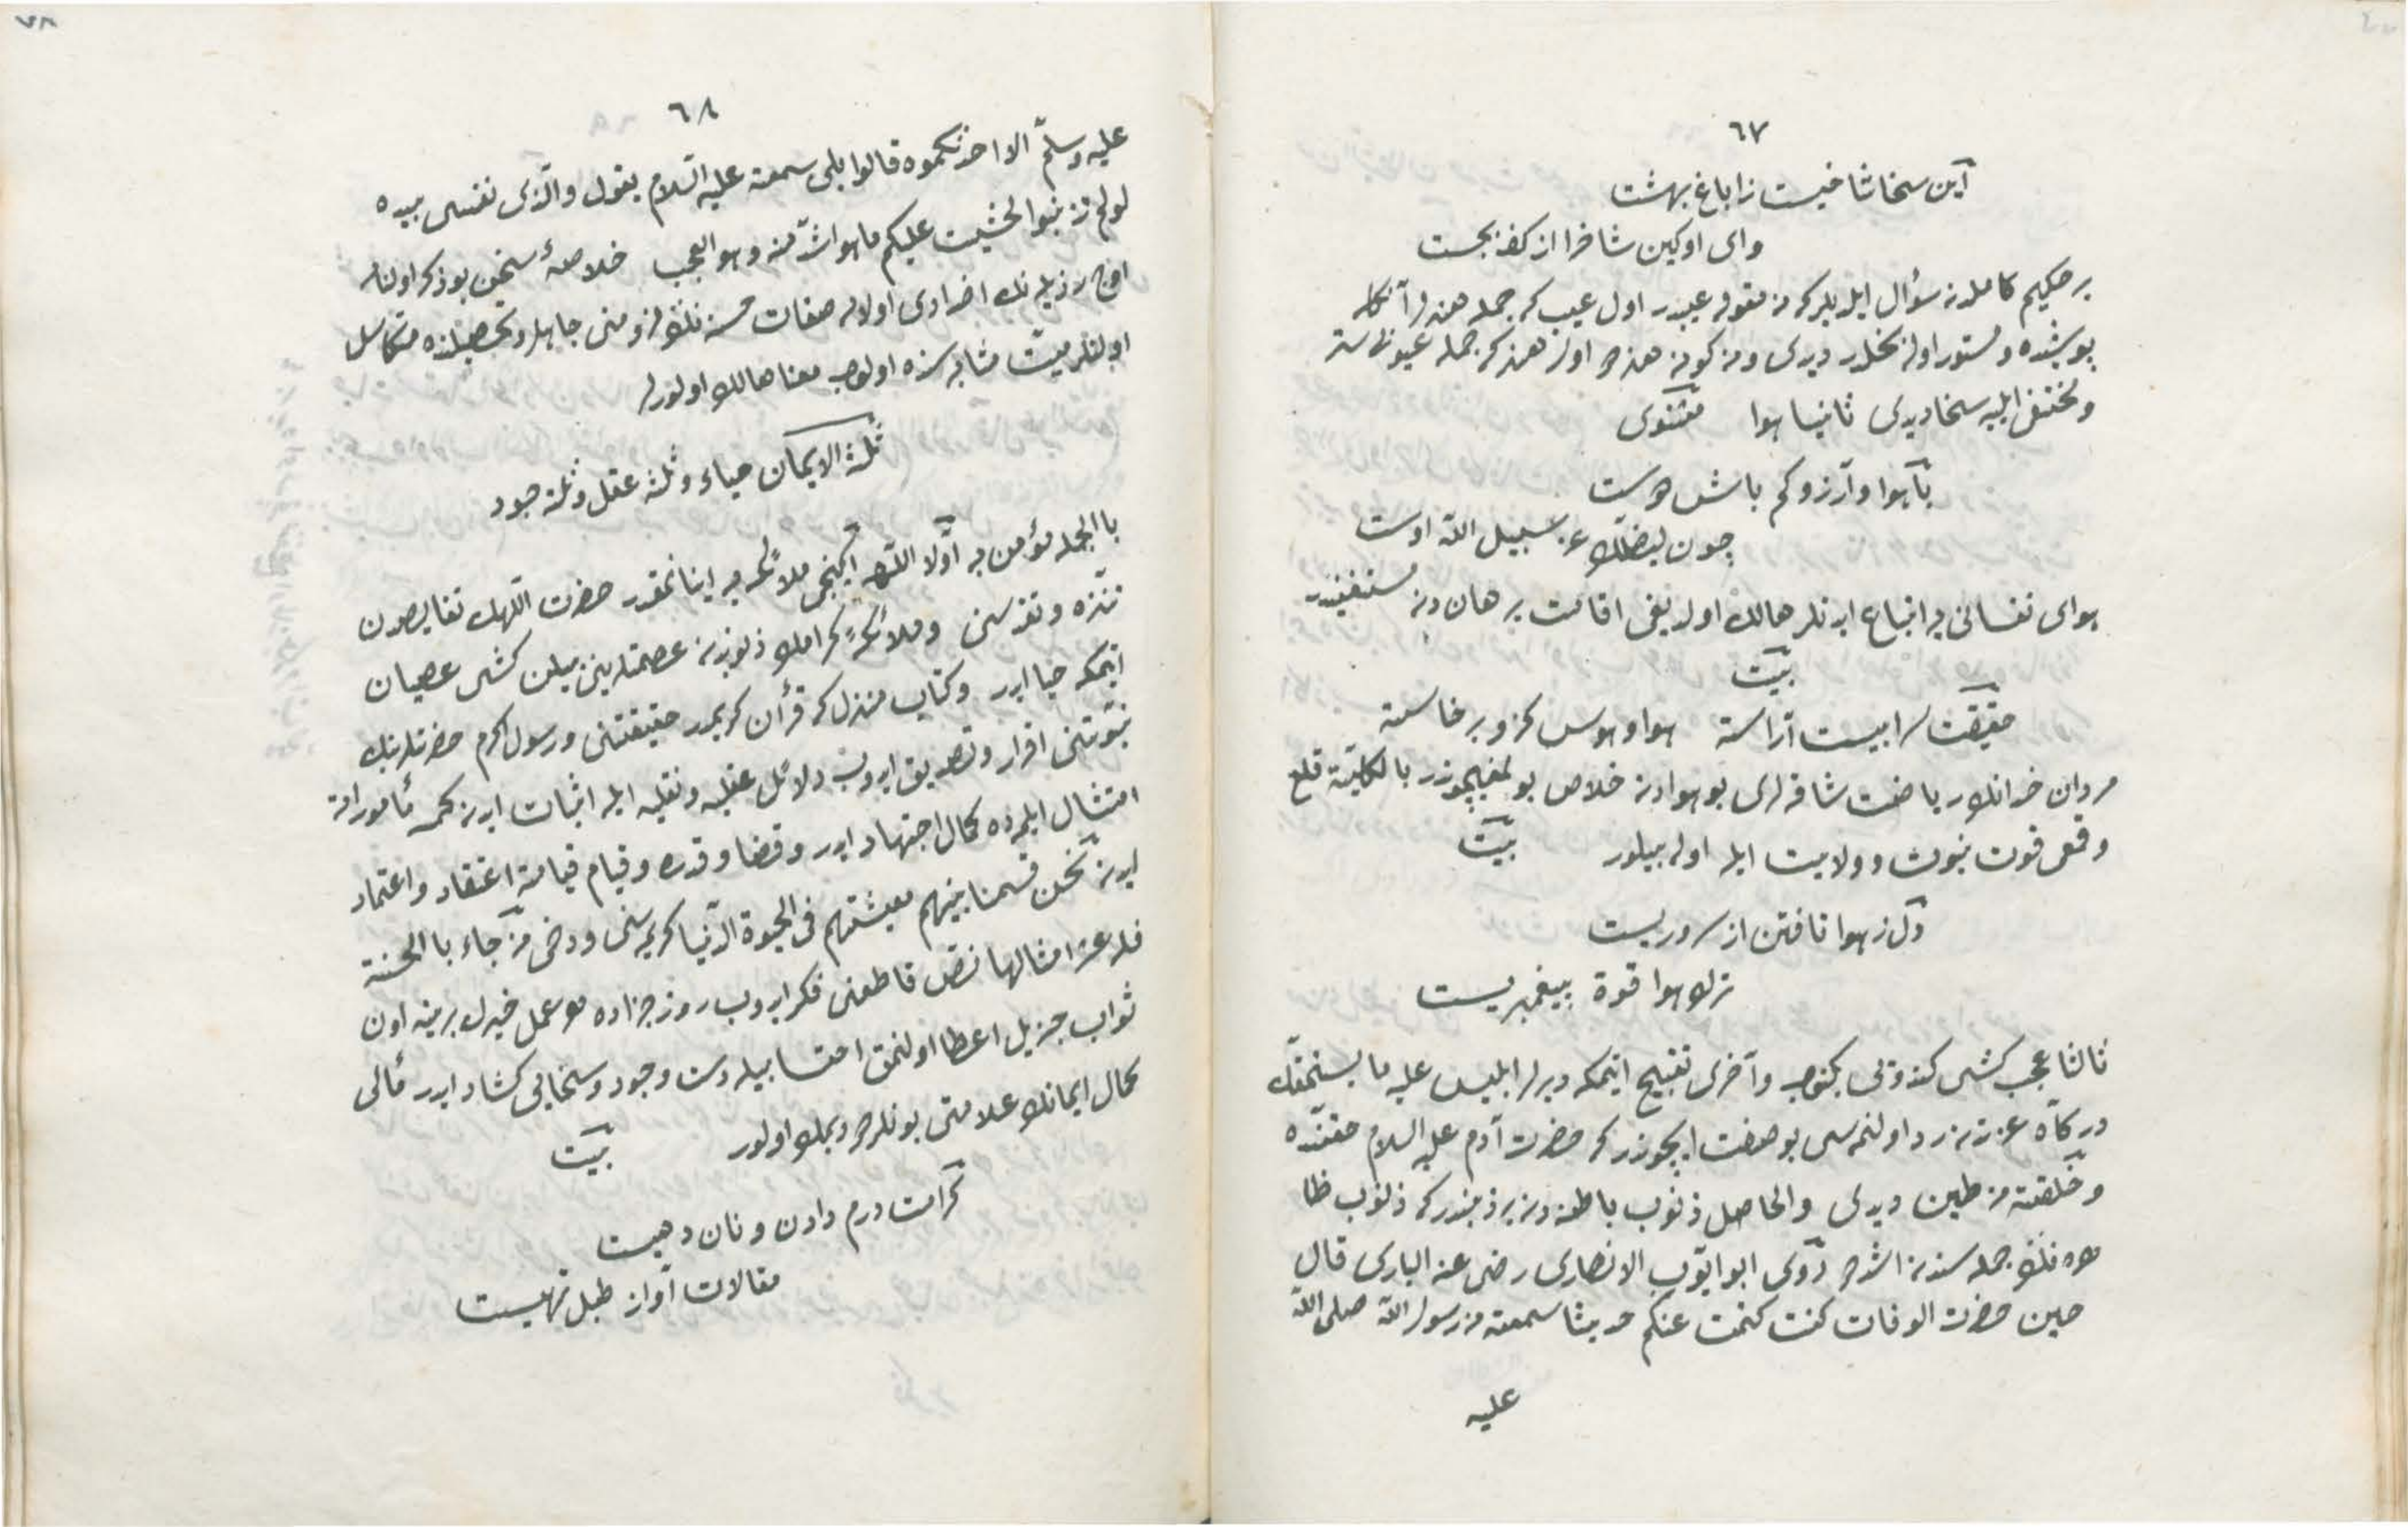 ٦٧
آین سخا شاخیست زاباغ بهشت
وای اوکین شاخرا از کف بهشت
بر حکیم کاملدن سؤال ایلدیلر که نه مقوله عیبدر اول عیب که جمله هنرلر آنکله
پوشیده و مستور اوله بخلدر دیدی ونه کونه هنردر اول هنر که جمله عیوبی ستر
و مختفی ایلیه سخا دیدی ثانیا هوا مثنوی
باهوا وآرزو کم باش دوست
چون یضلک عن سبیل الله اوست
هوای نفسانی یه اتباع ایدنلر هالك اولدیغی اقامت برهاندن مستغنیدر
بیت
حقیقت سراییست آراسته هوا و هوس کرد برخاسته
مردان خدانك ریاضت شاقه لری بو هوادن خلاص بولمغیچوندر بالکلیة قلع
وقمعی قوت نبوت و ولایت ایله اوله بیلور بیت
دل ز هوا تافتن از سروریست
ترك هوا قوة پیغمبریست
ثالثا عجب کشی کندوتی بکنوب وآخری تقبیح ایتمکه دیرلر ابلیس علیه ما یستحقك
درکاه عزتدن رد اولنمه سی بو صفت ایچوندر که حضرت آدم علیه السلام حقنده
وخلقته من طین دیدی والحاصل ذنوب باطنه دن بر ذنبدر که ذنوب ظا
هره نك جمله سندن اشددر روی ابو ایوب الانصاری رضی عنه الباری قال
حین حضرت الوفات کنت کتمت عنکم حدیثا سمعته من رسول الله صلی الله
علیه
٦٨
علیه وسلم الا احدثکموه قالوا بلی سمعته علیه السلام یقول والذی نفسی بیده
لولم تذنبوا لخشیت علیکم ما هو اشد منه وهو العجب خلاصهٔ سخن بو ذکر اولنان
اوچ رذیله نك اضدادی اولان صفات حسنه نك لزومنی جاهل و تحصیلنده متکاسل
اولنلر میت مثابه سنده اولوب معنا هالك اولورلر
ثلثة الایمان حیاء وثلثه عقل وثلثه جود
باالجمله مؤمن به اولا اللهه ایکنجی ملائکه یه اینانمقدر حضرت اللهك نقایصدن
تنزه و تقدسنی وملائکهٔ کرامك ذنوبدن عصمتلرینی بیلن کشی عصیان
ایتمکه حیا ایدر وکتاب منزل که قرأن کریمدر حقیقتنی و رسول اکرم حضرتلرینك
نبوتنی اقرار و تصدیق ایدوب دلائل عقلیه و نقلیه ایله اثبات ایدن کمسه مأموراته
امتثال ایلمده کمال اجتهاد ایدر و قضا و قدره و قیام قیامته اعتقاد و اعتماد
ایدن نحن قسمنا بینهم معیشتهم فی الحیوة الدنیا کریمه سنی ودخی من جاء باالحسنة
فله عشر امثالها نص قاطعنی فکر ایدوب روز جزاده هر عمل خیرك برینه اون
ثواب جزیل اعطا اولنمق احتسابیله دست وجود وسخایی کشاد ایدر مألی
کمال ایمانك علامتی بونلردر دیمك اولور بیت
کرامت درم دادن و نان دهیست
مقالات آواز طبل تهیست